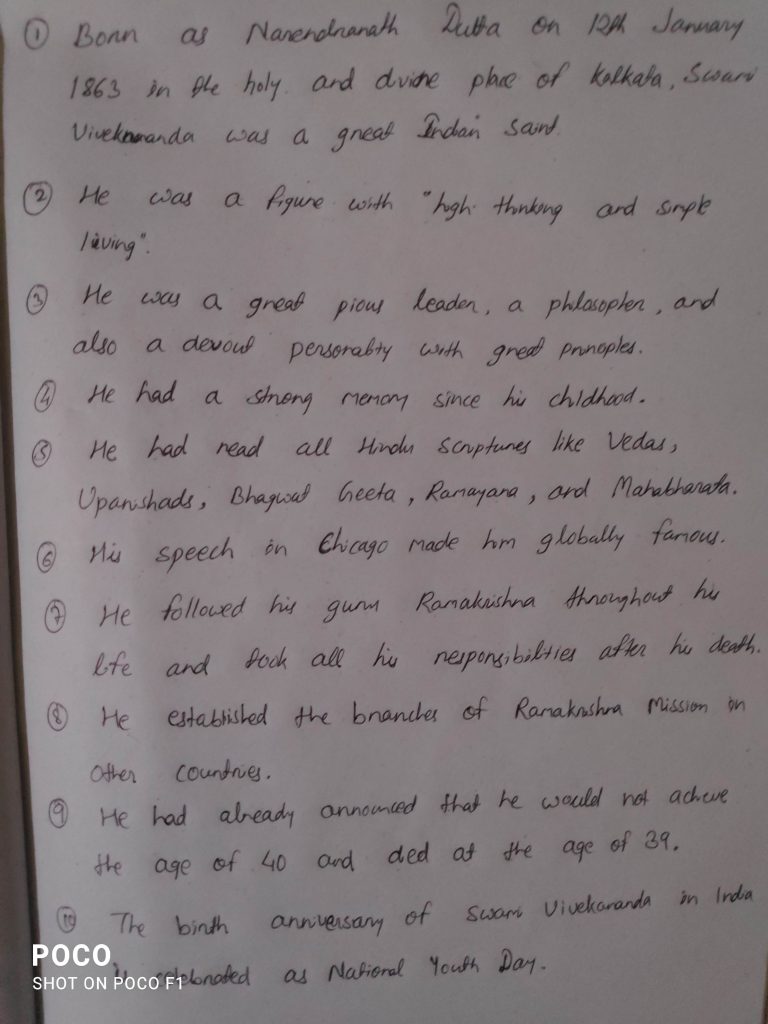 ① Born as Narendranath Dutta on 12th January
1863 in the holy and divine place of Kolkata, Swami
Vivekananda was a great Indian saint.
② He was a figure with "high thinking and simple
living".
③ He was a great pious leader, a philosopher, and
also a devout personality with great principles.
④ He had a strong memory since his childhood.
⑤ He had read all Hindu scriptures like Vedas,
Upanishads, Bhagwat Geeta, Ramayana, and Mahabharata.
⑥ His speech in Chicago made him globally famous.
⑦ He followed his guru Ramakrishna throughout his
life and took all his responsibilities after his death.
⑧ He established the branches of Ramakrishna Mission in
other countries.
⑨ He had already announced that he would not achieve
the age of 40 and died at the age of 39.
⑩ The birth anniversary of Swami Vivekananda in India
is celebrated as National Youth Day.
POCO
SHOT ON POCO F1